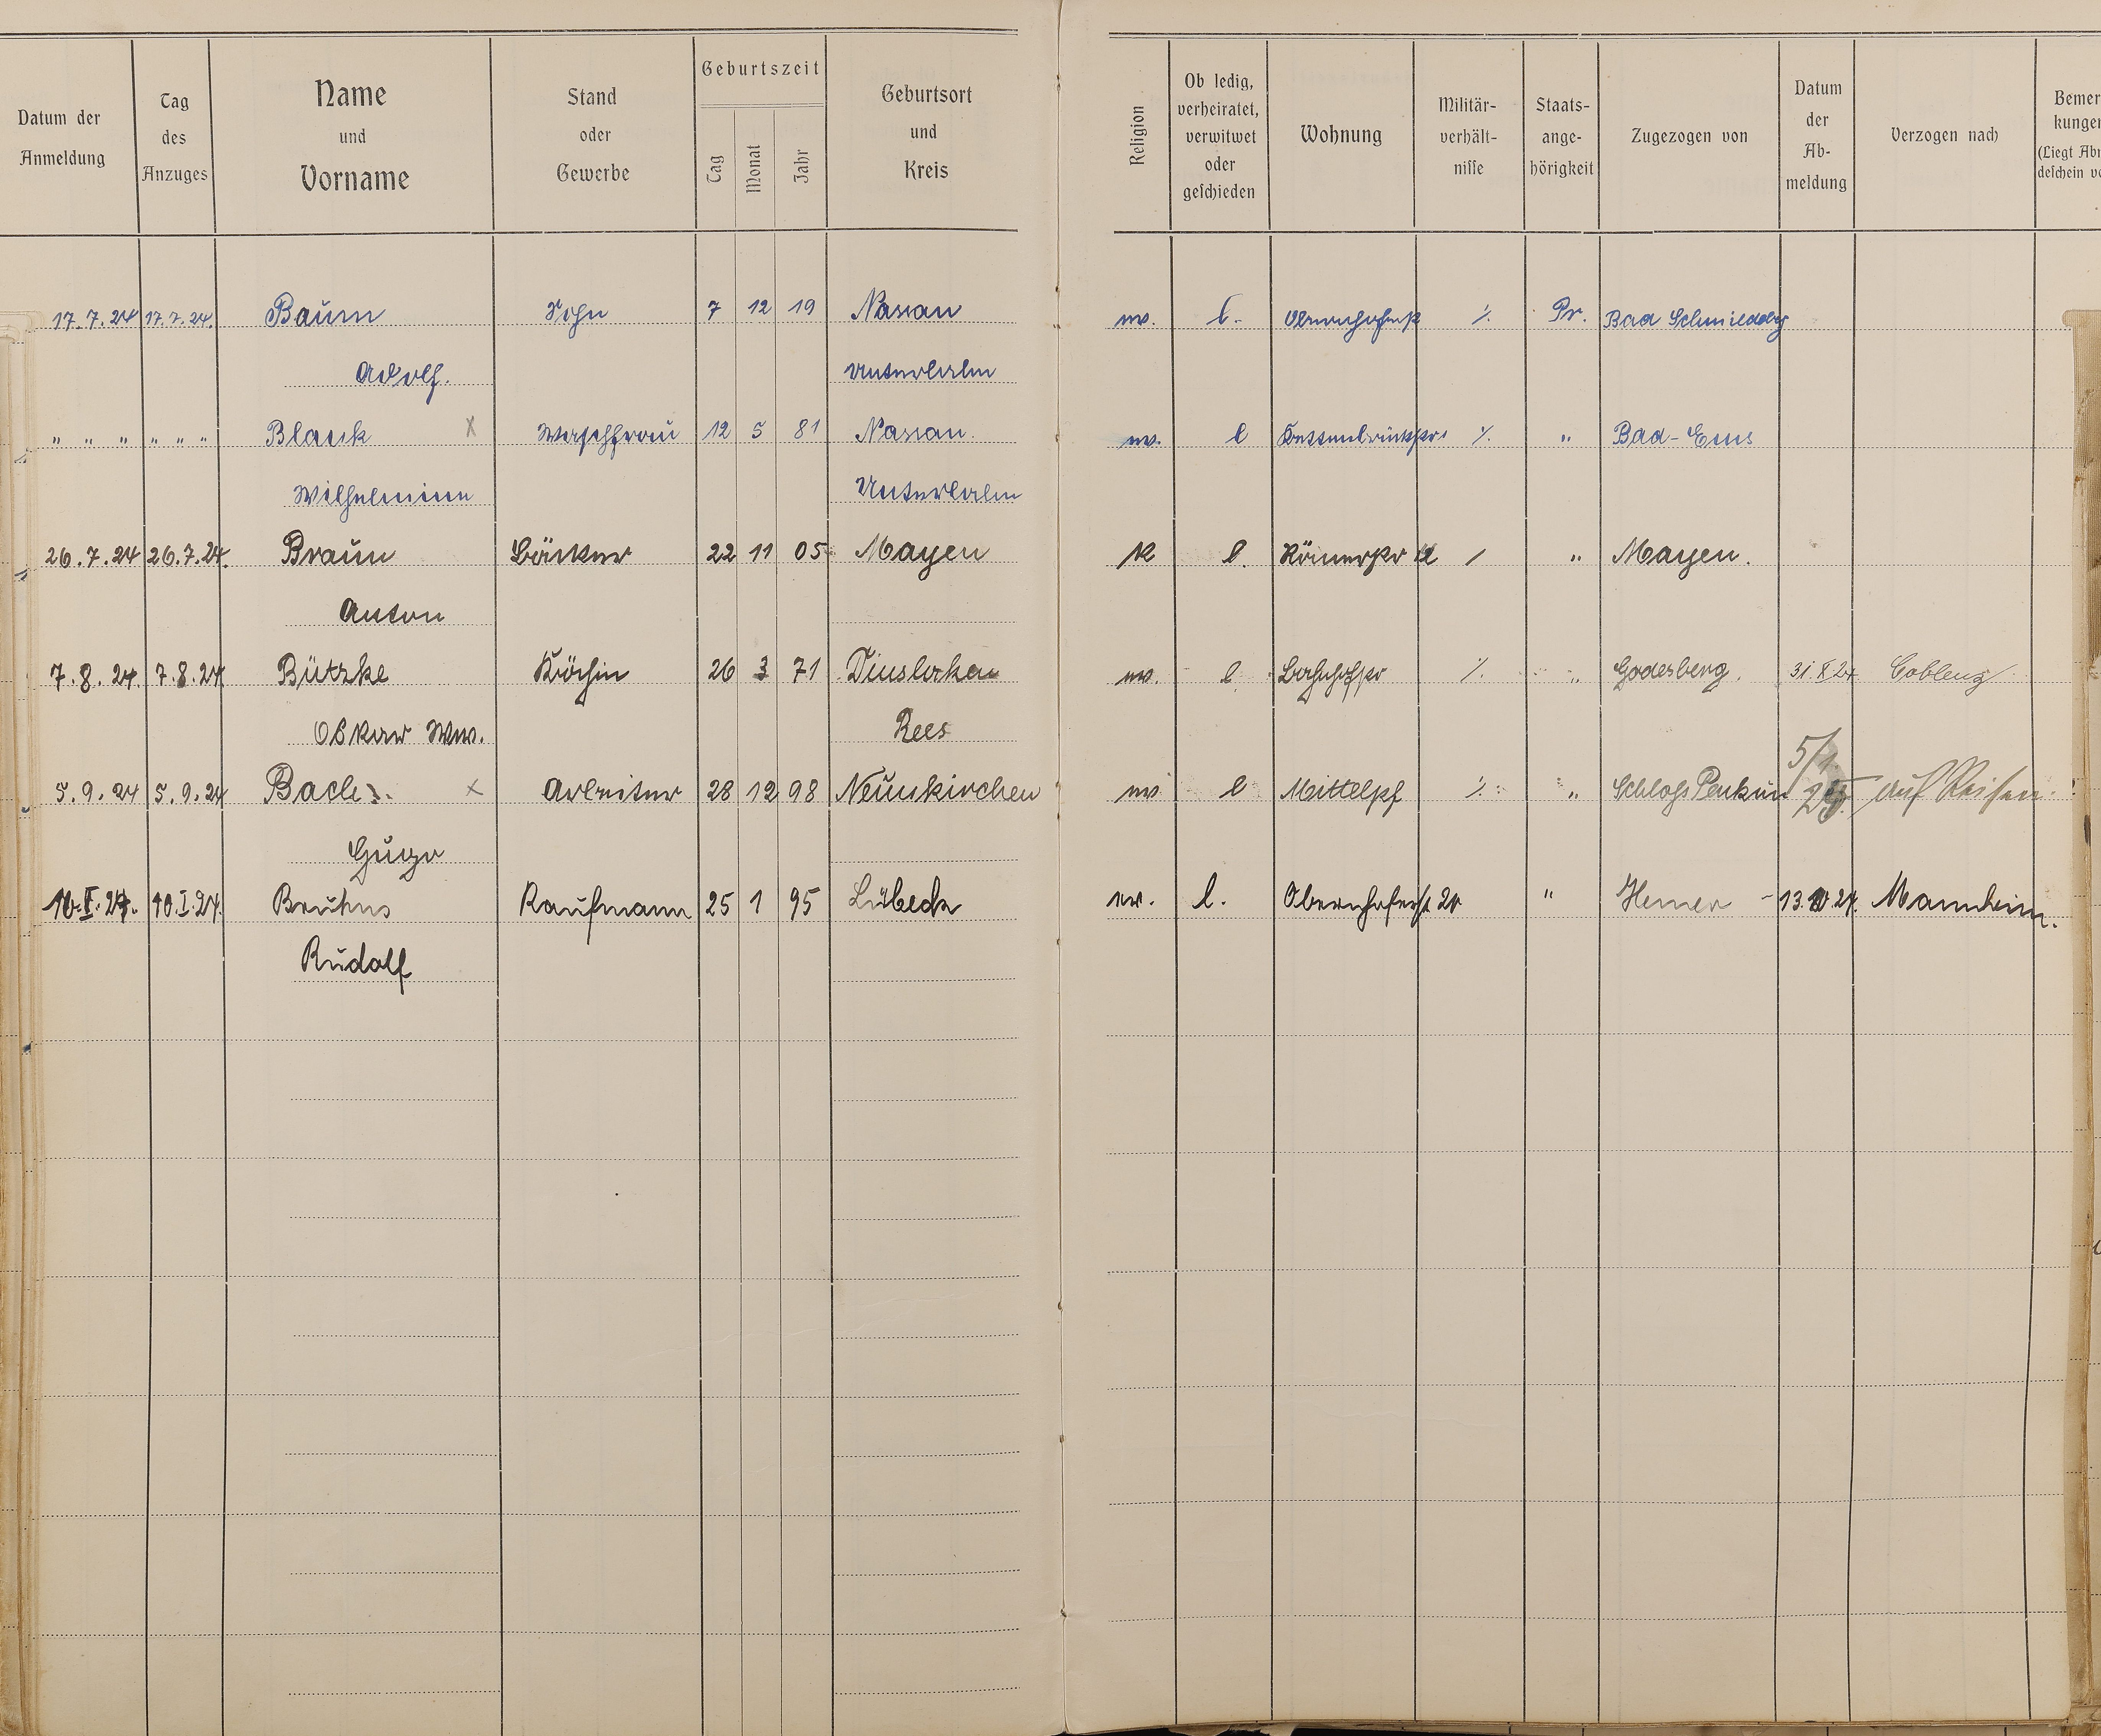 Datum der Anmeldung Tag des Anzuges Name und Vorname Stand oder Gewerbe Geburtszeit Tag Monat Jahr Geburtsort und Kreis Religion Ob ledig, verheiratet, verwitwet oder geschieden Wohnung Militär-verhält-nisse Staats-ange-hörigkeit Zugezogen von Datum der Ab-meldung Verzogen nach Bemer kungen (Liegt Abm deschein vo
17.7.24 17.7.24. Baum Sohn 7 12 19 Nassau ev. l. ·/. Pr. Bad Schmiedebg
Adolf. Unterlahn
" " " " " " Blank x Waschfrau 12 5 81 Nassau. ev. l Kettenbrückstr. ·/. " Bad-Ems
Wilhelmine Unterlahn
26.7.24 26.7.24. Braun Bäcker 22 11 05 Mayen K l. Römerstr / " Mayen.
Anton
7.8.24. 7.8.24 Bützke Köchin 26 3 71 Dinslaken ev. l. Bahnhofstr ·/. " Godesberg. 31.X 24 Coblenz
Oskar Ww. Rees
5.9.24 5.9.24 x Arbeiter 28 12 98 Neunkirchen ev l Mittelpf ·/. " Schloss Penkun 5/1. 25 auf Reisen.
Hugo
10.I.24. 10.I.24. Bruhns Kaufmann 25 1 95 Lübeck ev. l. Obernhoferst 20 " Hemer - 13. 24. Mannheim.
Rudolf